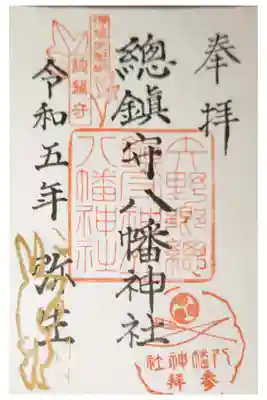 奉拝
總鎮守八幡神社
令和五年 弥生
總鎮守
八幡神社
八幡神社
参拜